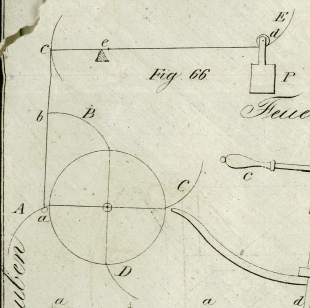 E
c e d
Fig 66 P
Feue
b B
c
C
A a
D
uben
a a d